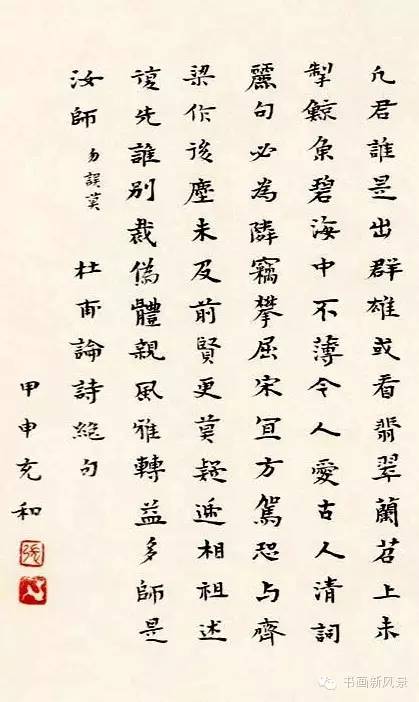 凡君誰是出群雄或看翡翠蘭苕上未
掣鯨魚碧海中不薄今人愛古人清詞
麗句必為隣竊攀屈宋冝方駕恐与齊
梁作後塵未及前賢更莫疑遞相祖述
復先誰別裁偽體親風雅轉益多師是
汝師 勿誤莫 杜甫論詩絕句
甲申充和
張
书画新风景